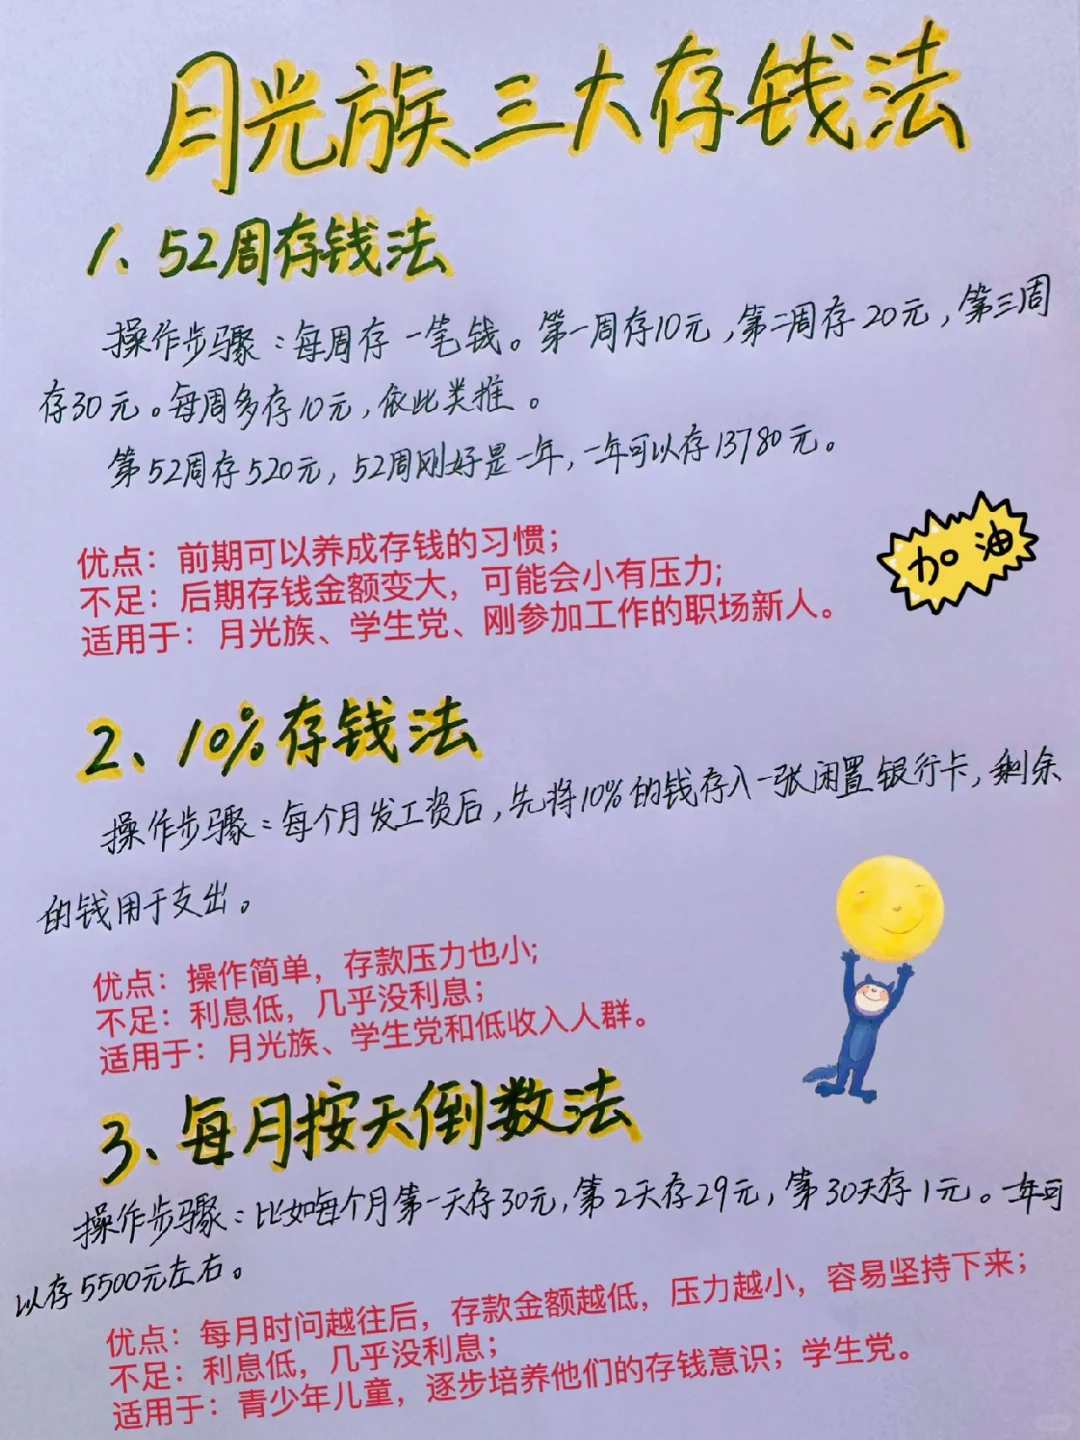 月光族三大存钱法
1、52周存钱法
操作步骤：每周存一笔钱。第一周存10元，第二周存20元，第三周
存30元。每周多存10元，依此类推。
第52周存520元，52周刚好是一年，一年可以存13780元。
优点：前期可以养成存钱的习惯；
不足：后期存钱金额变大，可能会小有压力;
适用于：月光族、学生党、刚参加工作的职场新人。
加油
2、10%存钱法
操作步骤：每个月发工资后，先将10%的钱存入一张闲置银行卡，剩余
的钱用于支出。
优点：操作简单，存款压力也小;
不足：利息低，几乎没利息；
适用于：月光族、学生党和低收入人群。
3、每月按天倒数法
操作步骤：比如每个月第一天存30元，第2天存29元，第30天存1元。一年可
以存5500元左右。
优点：每月时问越往后，存款金额越低，压力越小，容易坚持下来；
不足：利息低，几乎没利息；
适用于：青少年儿童，逐步培养他们的存钱意识；学生党。